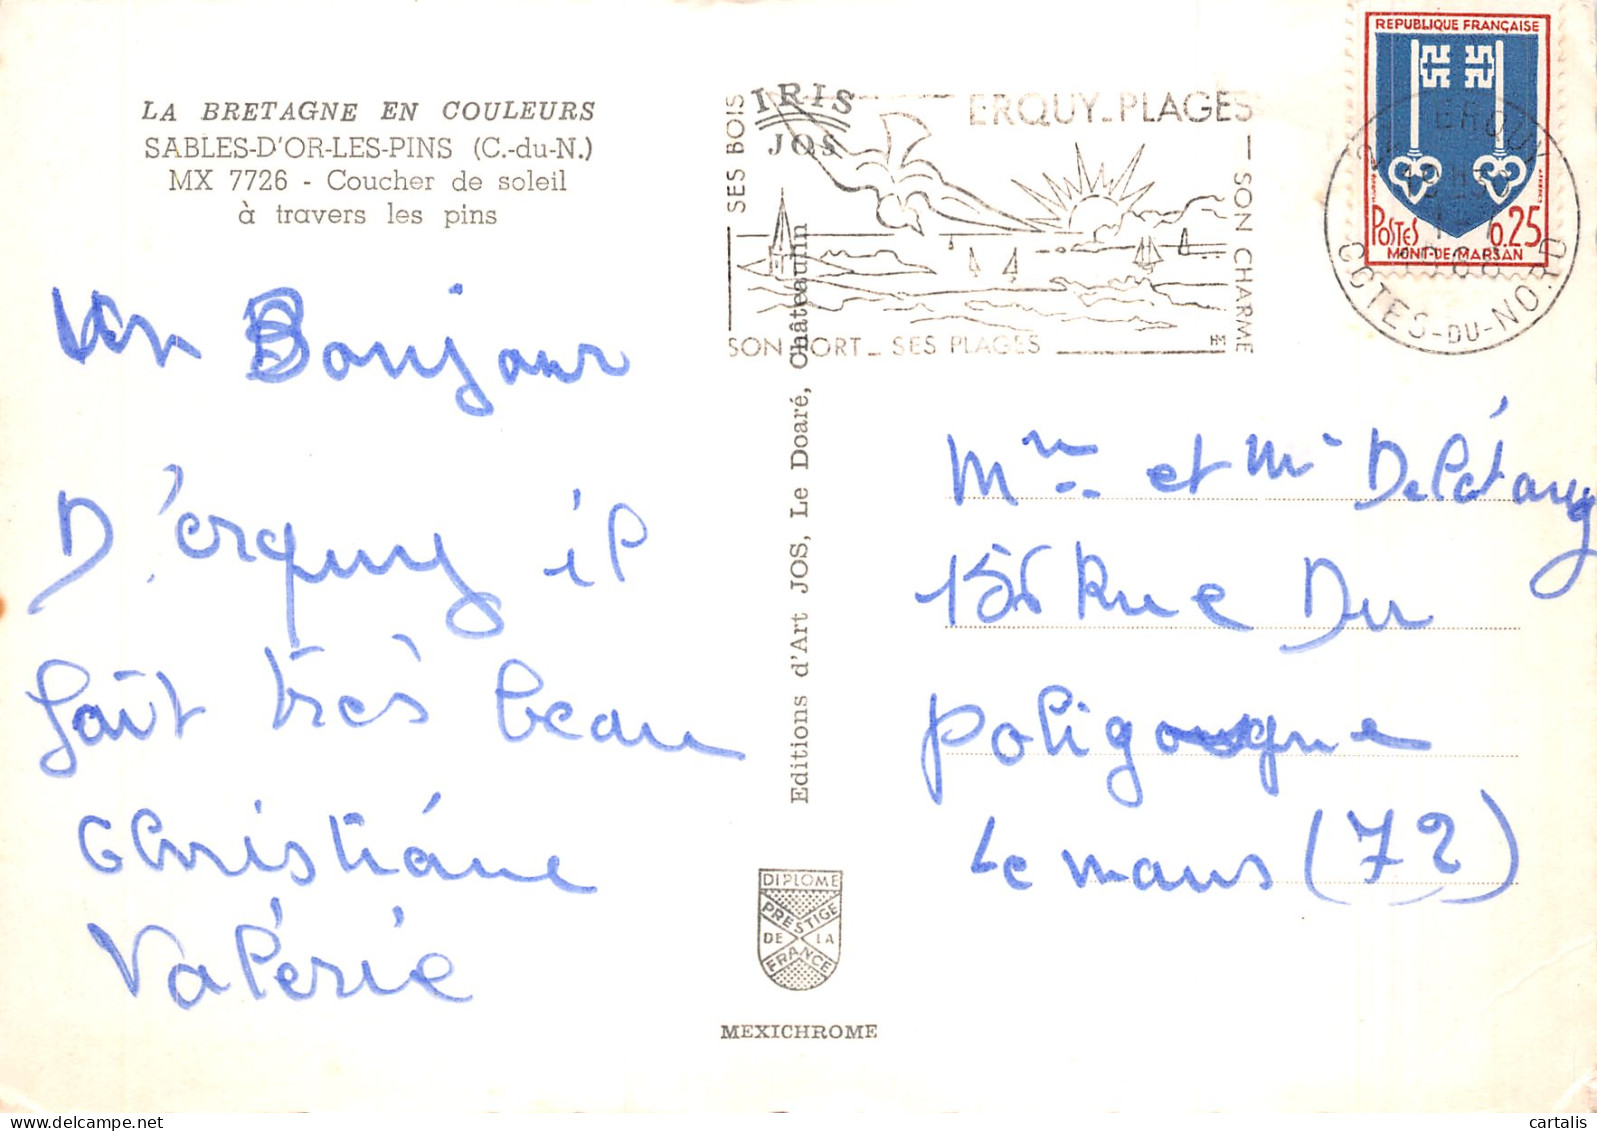 LA BRETAGNE EN COULEURS
SABLES-D'OR-LES-PINS (C.-du-N.)
MX 7726 - Coucher de soleil
à travers les pins
un Bonjour
D'erquy il
fait très beau
Christiane
Valérie
IRIS
JOS
Editions d'Art JOS, Le Doaré, Châteaulin
DIPLOME
PRESTIGE
DE LA
FRANCE
MEXICHROME
ERQUY_PLAGES
SES BOIS
SON CHARME
SON PORT_ SES PLAGES
REPUBLIQUE FRANÇAISE
POSTES 0.25
MONT-DE-MARSAN
ERQUY
COTES-DU-NORD
Mme et Mr Delétang
156 Rue Du
poligougne
Le mans (72)
cartalis